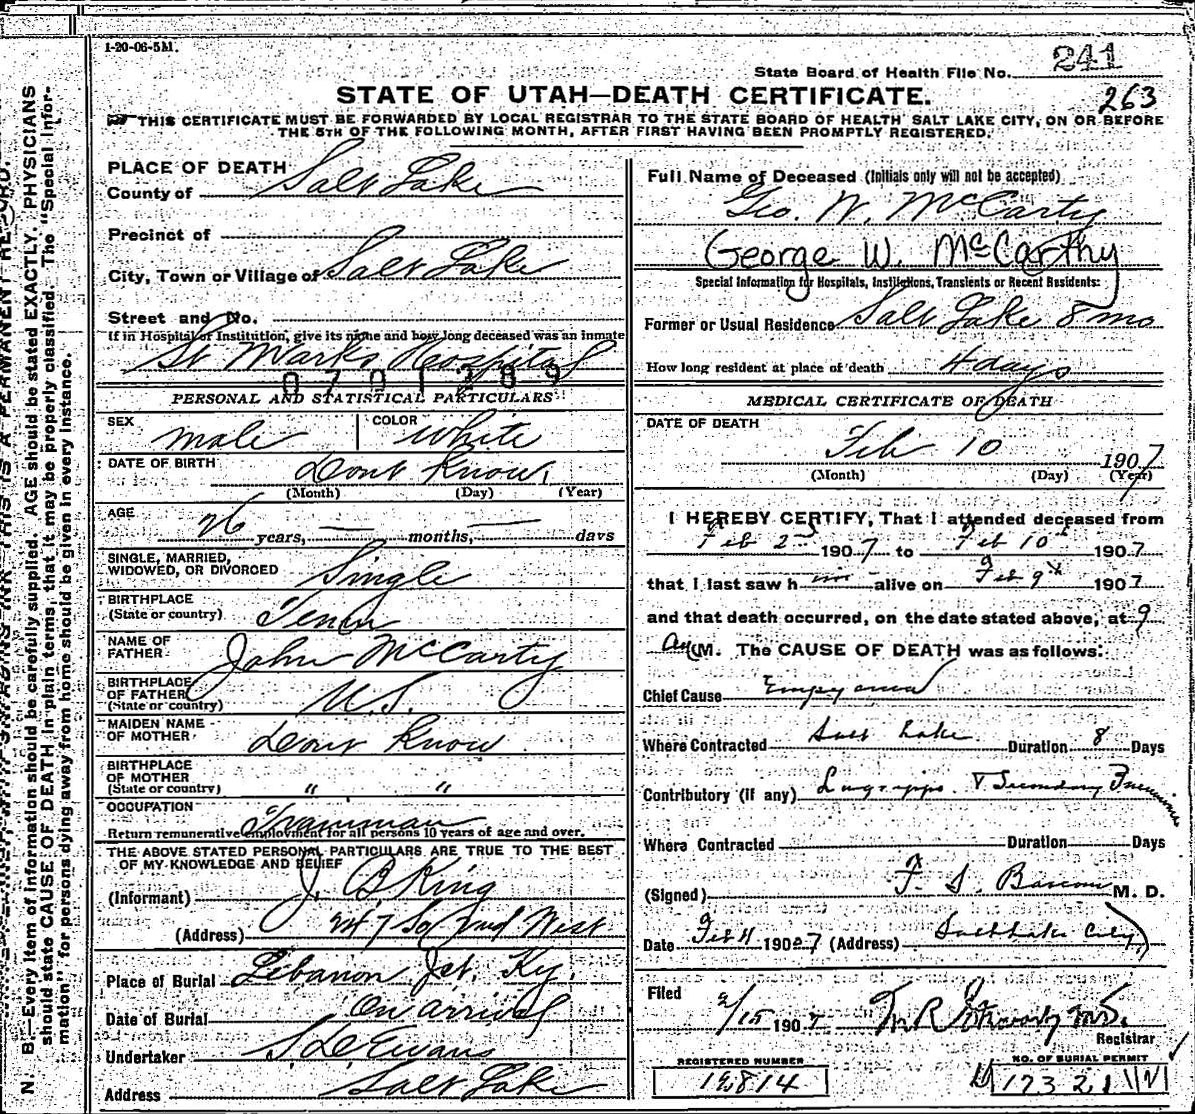 1-20-06-5M.
State Board of Health File No. 241
STATE OF UTAH—DEATH CERTIFICATE.
263
THIS CERTIFICATE MUST BE FORWARDED BY LOCAL REGISTRAR TO THE STATE BOARD OF HEALTH SALT LAKE CITY, ON OR BEFORE
THE 5TH OF THE FOLLOWING MONTH, AFTER FIRST HAVING BEEN PROMPTLY REGISTERED.
PLACE OF DEATH
County of Salt Lake
Precinct of
City, Town or Village of Salt Lake
Street and No.
If in Hospital or Institution, give its name and how long deceased was an inmate
St Marks Hospital
0701389
PERSONAL AND STATISTICAL PARTICULARS
SEX male COLOR White
DATE OF BIRTH Dont Know
(Month) (Day) (Year)
AGE
26 years, — months, — days
SINGLE, MARRIED,
WIDOWED, OR DIVORCED Single
BIRTHPLACE
(State or country) Tenn
NAME OF
FATHER John McCarty
BIRTHPLACE
OF FATHER
(State or country) U.S.
MAIDEN NAME
OF MOTHER Dont Know
BIRTHPLACE
OF MOTHER
(State or country) " "
OCCUPATION Trainman
Return remunerative employment for all persons 10 years of age and over.
THE ABOVE STATED PERSONAL PARTICULARS ARE TRUE TO THE BEST
OF MY KNOWLEDGE AND BELIEF
(Informant) J. B King
(Address) 247 So 2nd West
Place of Burial Lebanon Jct. Ky.
Date of Burial On arrival
Undertaker S D Evans
Address Salt Lake
Full Name of Deceased (Initials only will not be accepted)
Geo. W. McCarty
George W. McCarthy
Special Information for Hospitals, Institutions, Transients or Recent Residents:
Former or Usual Residence Salt Lake 8 mo
How long resident at place of death 4 days
MEDICAL CERTIFICATE OF DEATH
DATE OF DEATH
Feb 10 1907
(Month) (Day) (Year)
I HEREBY CERTIFY, That I attended deceased from
Feb 1907 to Feb 10th 1907
that I last saw him alive on Feb 9th 1907
and that death occurred, on the date stated above, at 9
AM. The CAUSE OF DEATH was as follows:
Chief Cause Empyema
Where Contracted Salt Lake Duration 8 Days
Contributory (if any) Lagrippe
Where Contracted Duration Days
(Signed) F. S. Bascom M. D.
Date Feb 11 1907 (Address) Salt Lake City
Filed
2/15 1907
Registrar
REGISTERED NUMBER
12814
NO. OF BURIAL PERMIT
N. B.—Every item of information should be carefully supplied. AGE should be stated EXACTLY. PHYSICIANS
should state CAUSE OF DEATH in plain terms, that it may be properly classified. The "Special Infor-
mation" for persons dying away from home should be given in every instance.